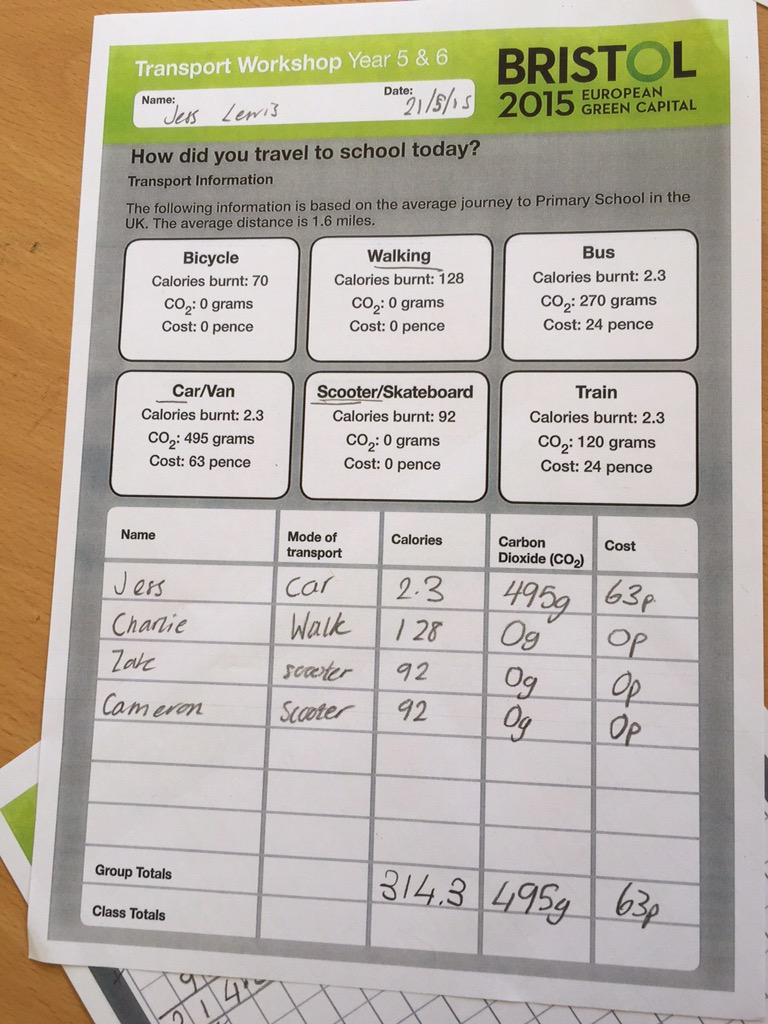 Transport Workshop Year 5 & 6
BRISTOL
2015 EUROPEAN GREEN CAPITAL
Name: Jess Lewis
Date: 21/5/15
How did you travel to school today?
Transport Information
The following information is based on the average journey to Primary School in the
UK. The average distance is 1.6 miles.
Bicycle
Calories burnt: 70
CO₂: 0 grams
Cost: 0 pence
Walking
Calories burnt: 128
CO₂: 0 grams
Cost: 0 pence
Bus
Calories burnt: 2.3
CO₂: 270 grams
Cost: 24 pence
Car/Van
Calories burnt: 2.3
CO₂: 495 grams
Cost: 63 pence
Scooter/Skateboard
Calories burnt: 92
CO₂: 0 grams
Cost: 0 pence
Train
Calories burnt: 2.3
CO₂: 120 grams
Cost: 24 pence
Name Mode of transport Calories Carbon Dioxide (CO₂) Cost
Jess Car 2.3 495g 63p
Charlie Walk 128 0g 0p
Zak scooter 92 0g 0p
Cameron Scooter 92 0g 0p
Group Totals 314.3 495g 63p
Class Totals